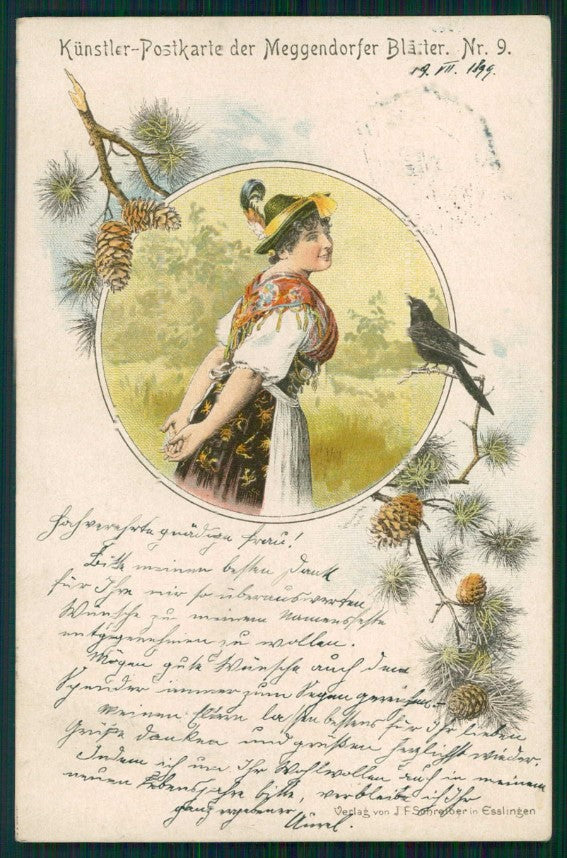 Künstler-Postkarte der Meggendorfer Blätter. Nr. 9.
19. VII. 1899.
Hochverehrte gnädige Frau!
Bitte meinen besten Dank
für Ihre mir so überaus werten
Wünsche zu meinem Namensfeste
entgegennehmen zu wollen.
Mögen gute Wünsche auch dem
Spender immer zum Segen gereichen.
Meine Eltern lassen bestens für Ihr lieben
Grüße danken und grüßen herzlichst wieder.
Indem ich um Ihr Wohlwollen auch in meinem
neuen Lebensjahre bitte, verbleibe ich Ihr
ganz ergebener
Aurel.
Verlag von J. F. Schreiber in Esslingen